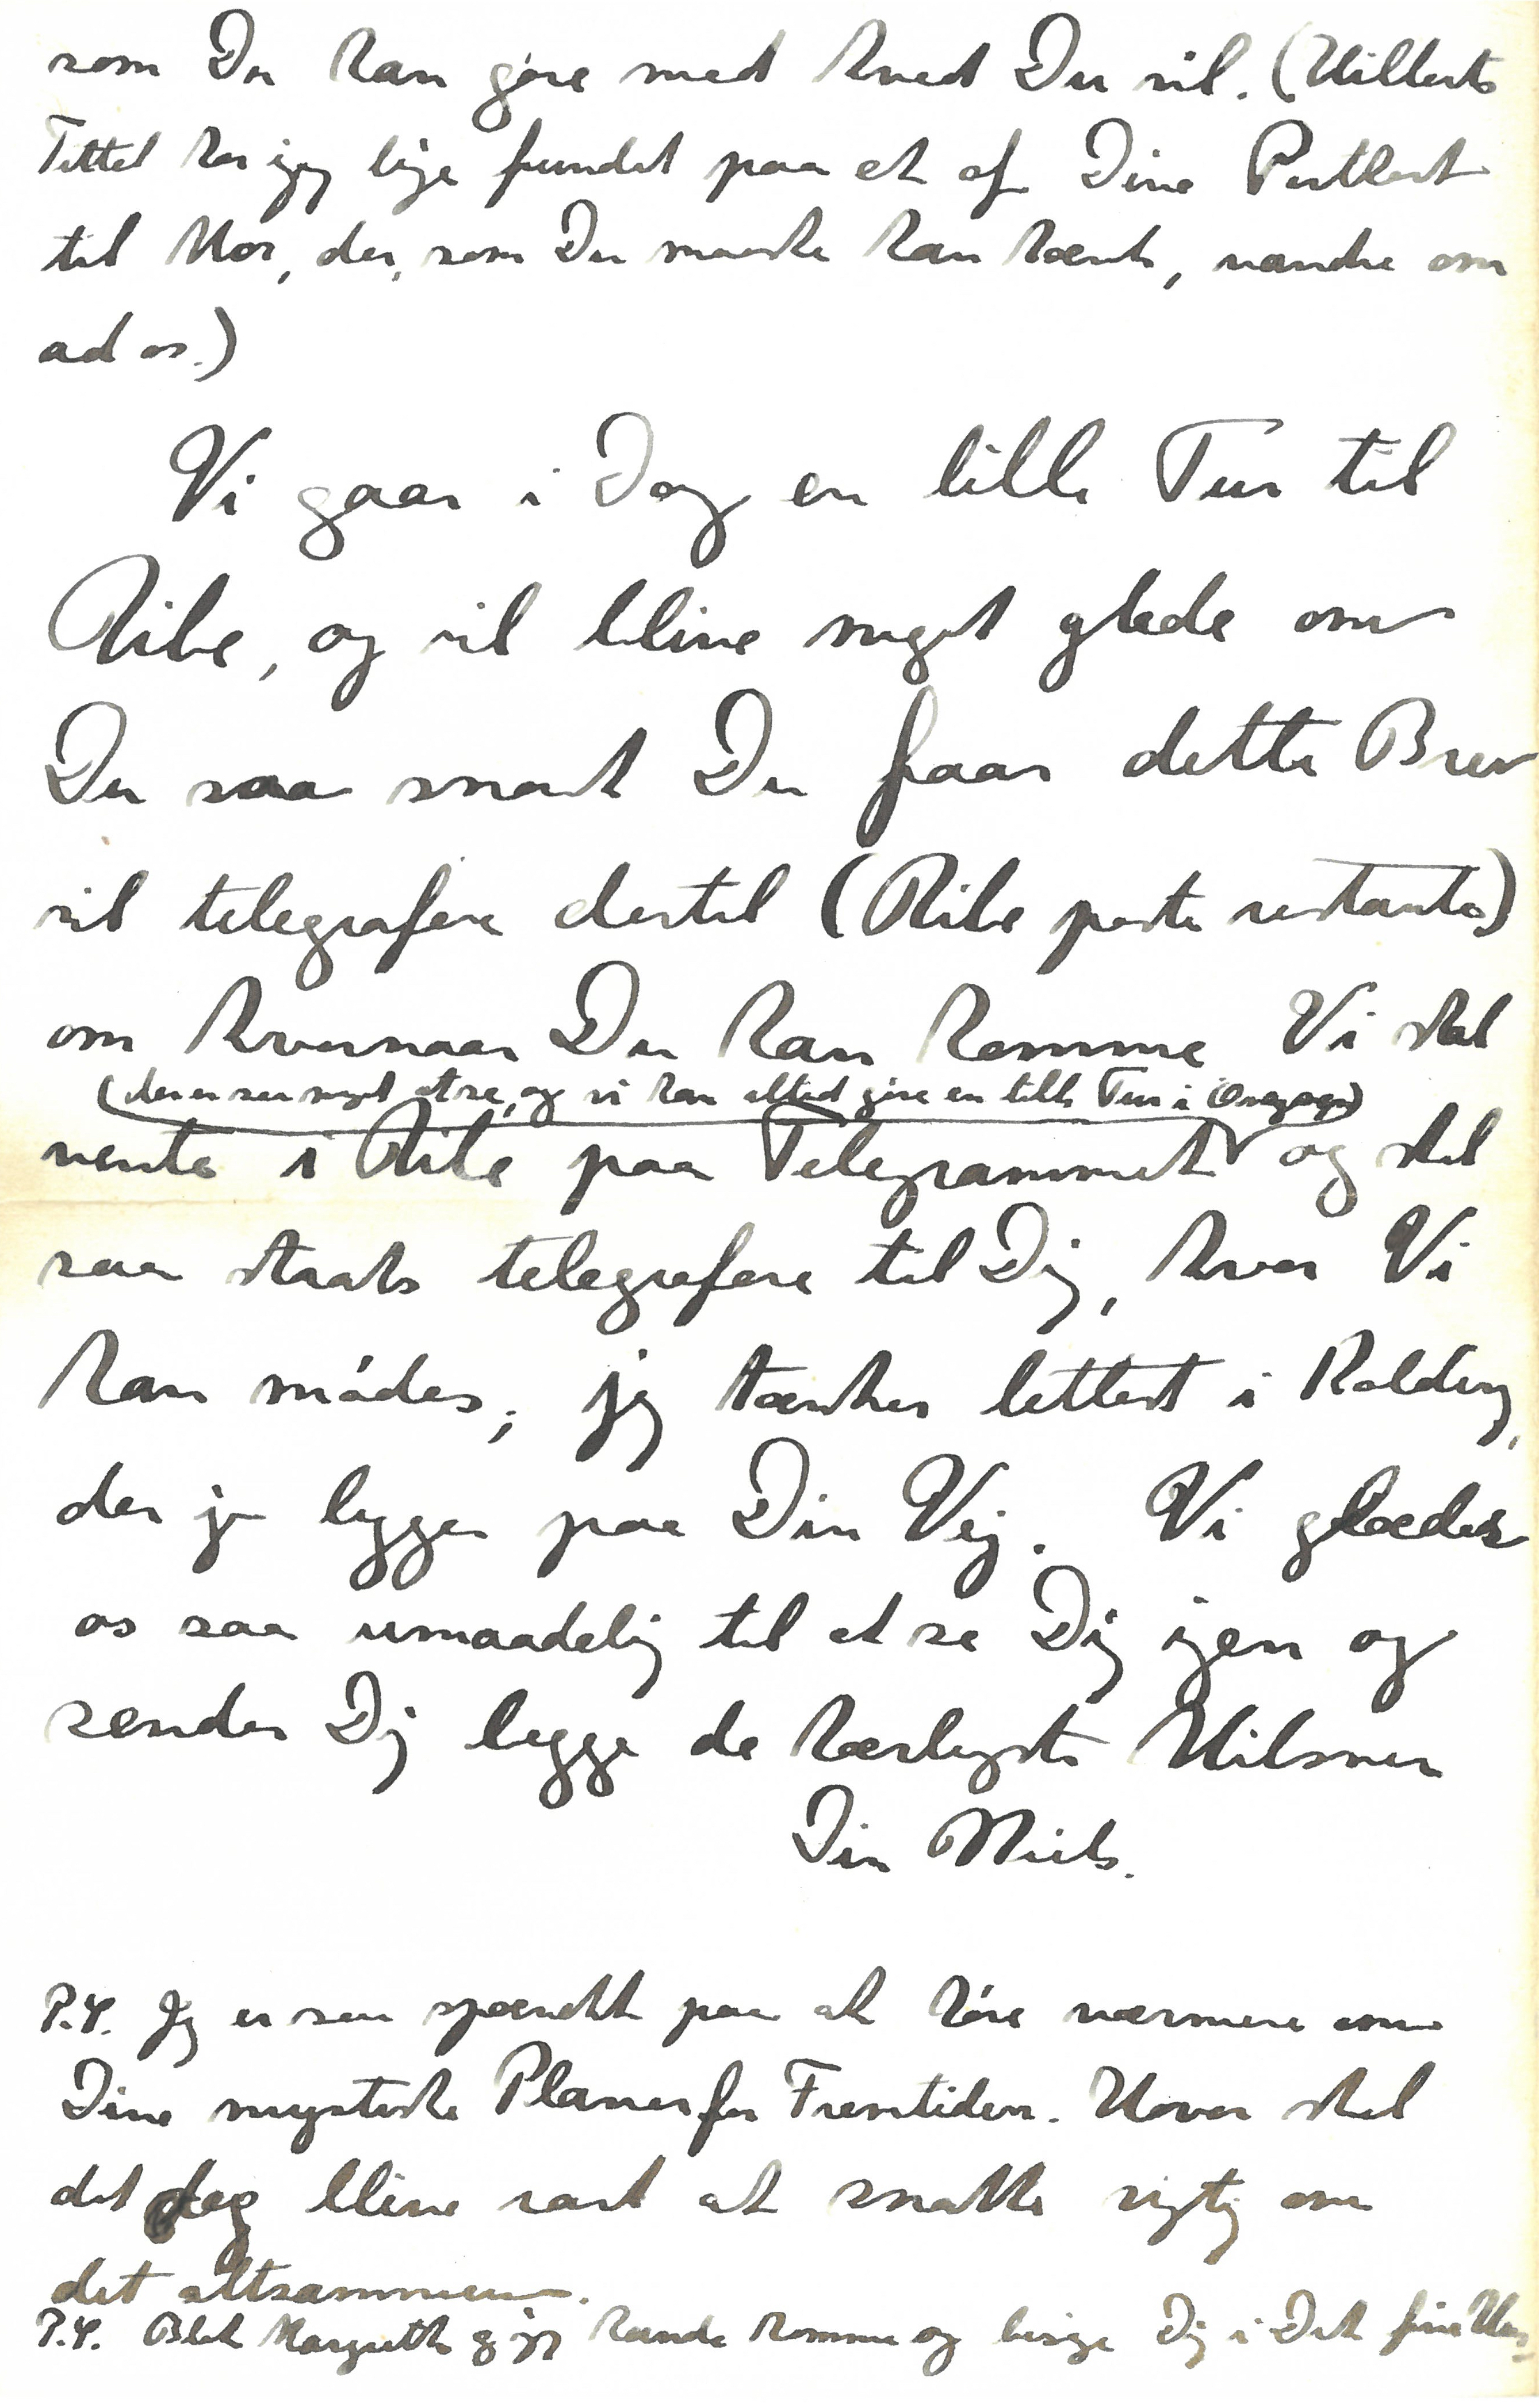 som Du kan gøre med hvad Du vil. (Hilberts
Tittel har jeg lige fundet paa et af Dine Postkort
til Mor, der, som Du maaske kan tænke, vandre om
ad os.)
Vi gaar i Dag en lille Tur til
Ribe, og vil blive meget glade om
Du saa snart Du faar dette Brev
vil telegrafere dertil (Ribe poste restante)
om hvornaar Du kan komme Vi skal
(der er saa meget at se, og vi kan altid gøre en lille Tur i Omegnen)
vente i Ribe paa Telegrammet og skal
saa straks telegrafere til Dig, hvor Vi
kan mødes, jeg tænker lettest i Kolding,
der jo ligger paa Din Vej. Vi glæder
os saa umaadelig til at se Dig igen og
sender Dig begge de kærligste Hilsner
Din Niels.
P.S. Jeg er saa spændt paa at høre nærmere om
Dine mystiske Planer for Fremtiden. Hvor skal
det dog blive rart at snakke rigtig om
det altsammen.
P.S. Blot Margrethe og jeg kunde komme og besøge Dig i Det fine